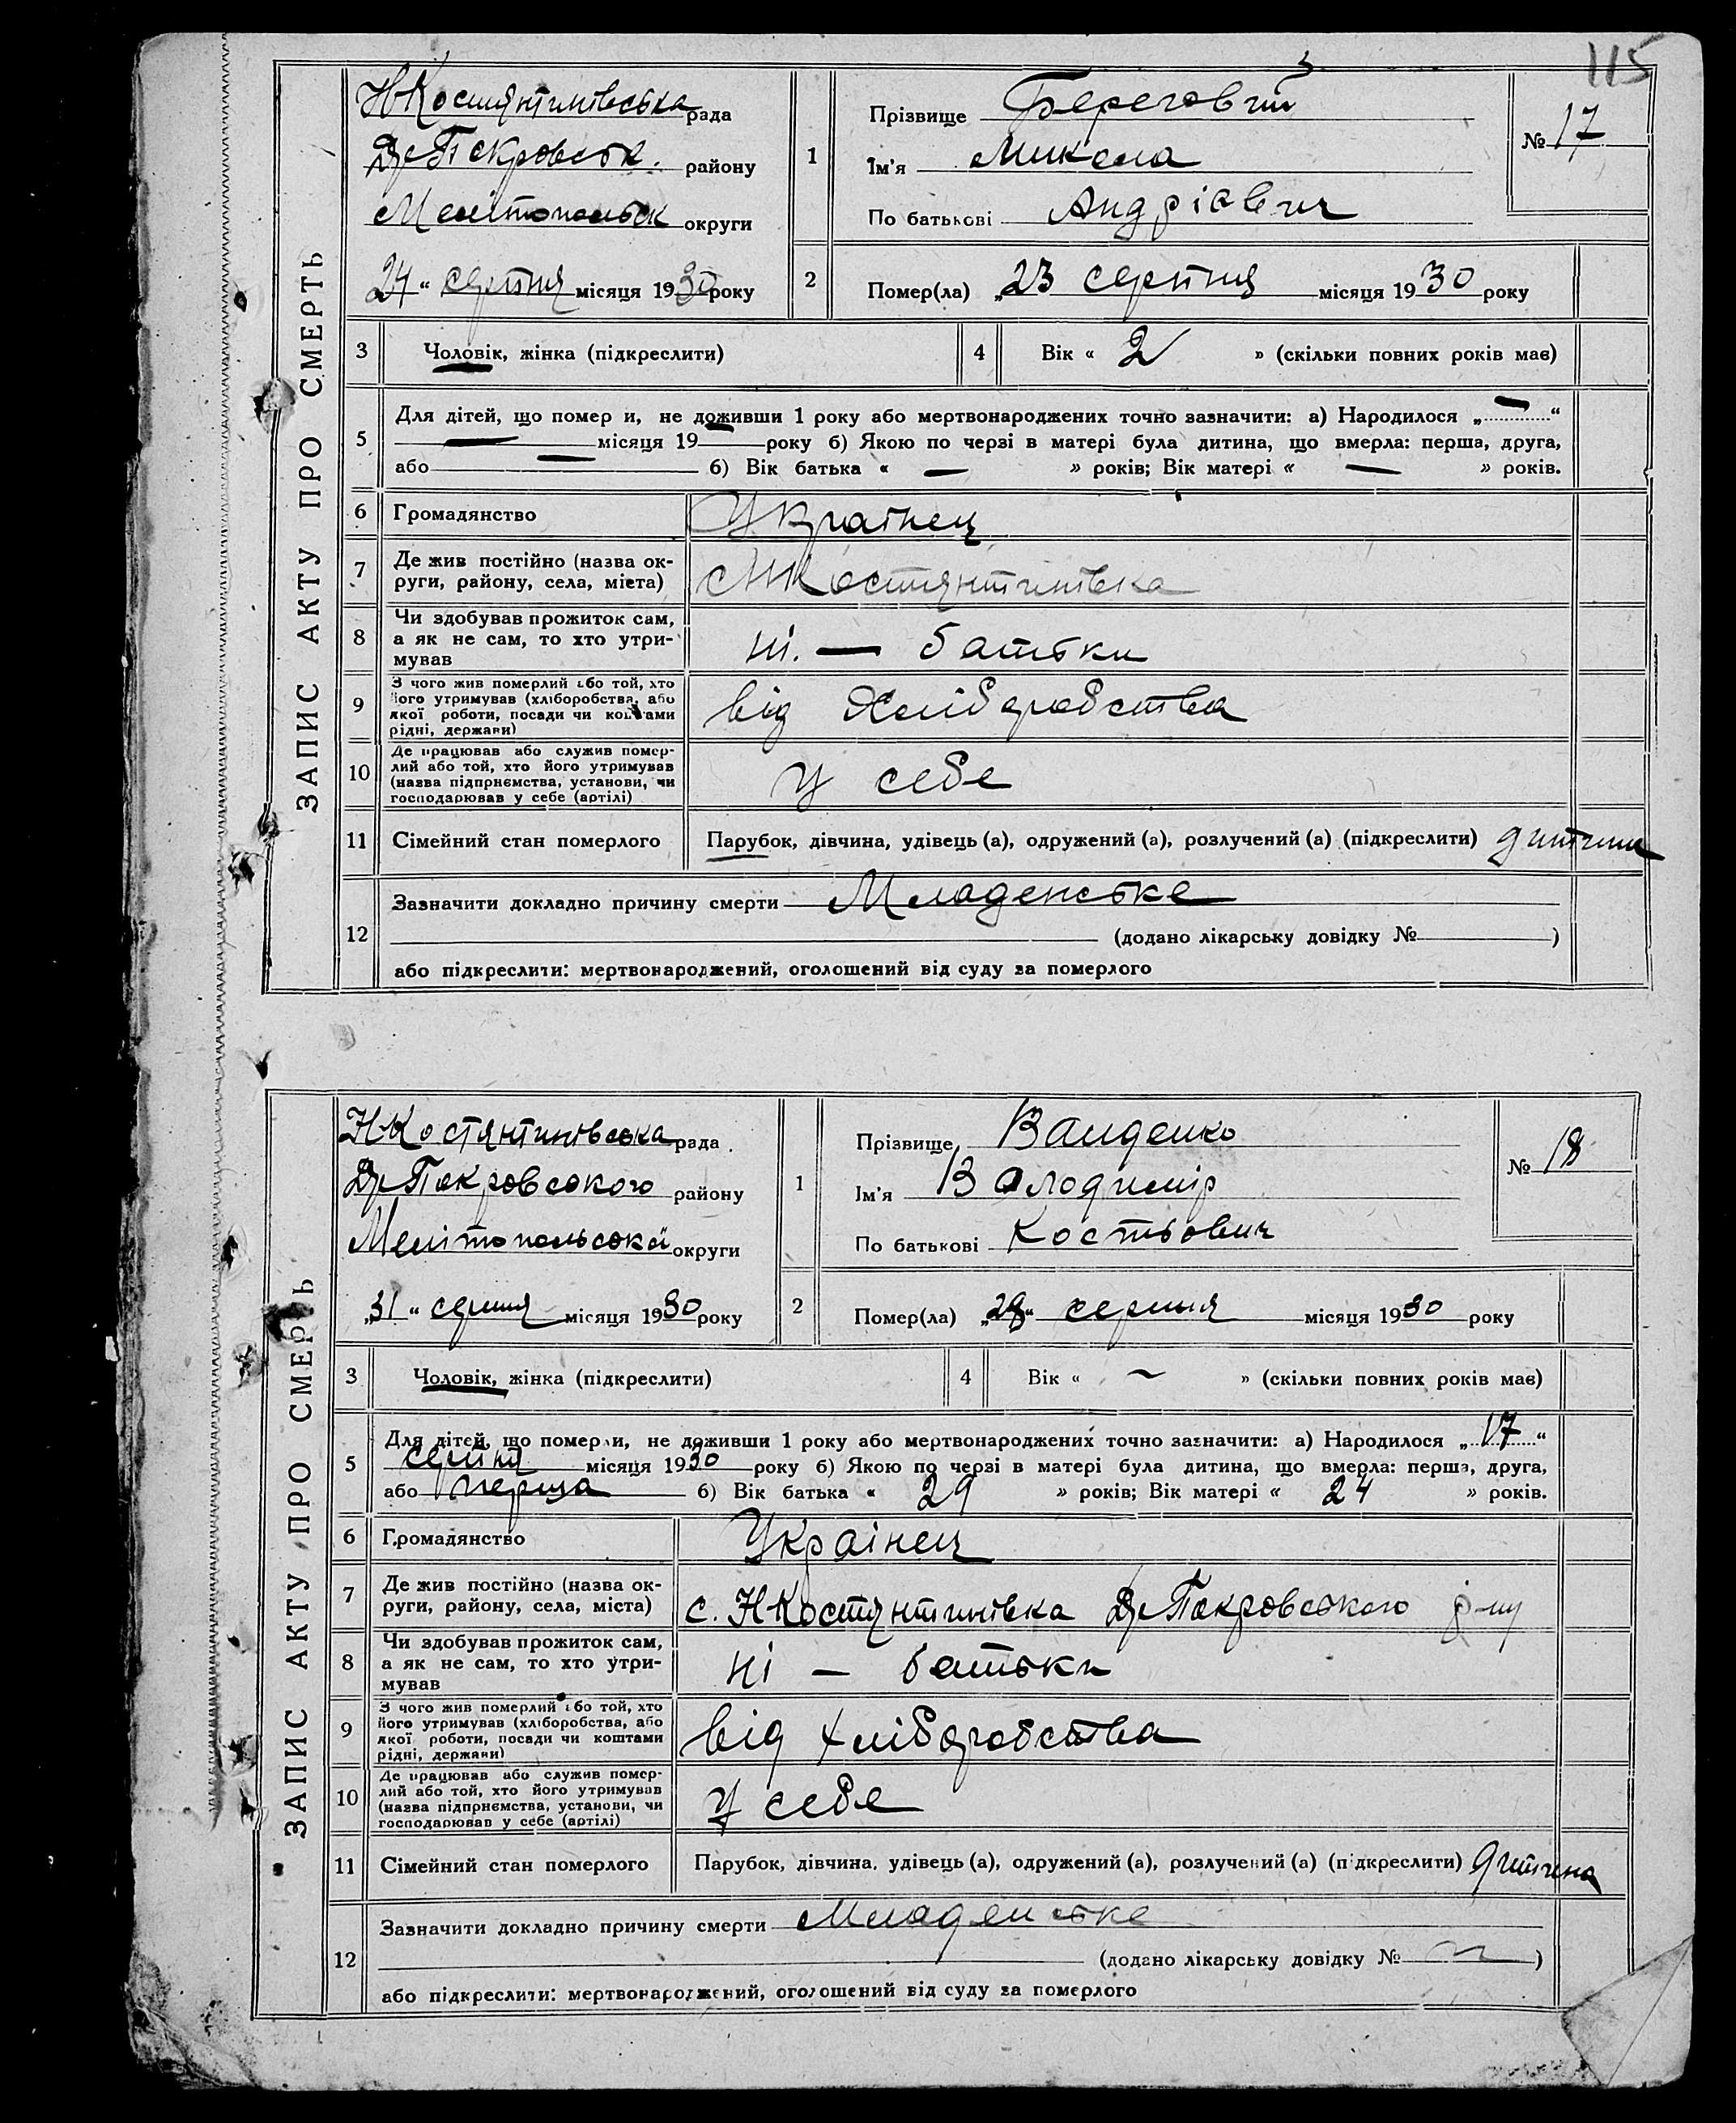 115
ЗАПИС АКТУ ПРО СМЕРТЬ
НКостянтинівська рада
Др Покровськ. району
Мелітопольськ округи
24 “ серпня місяця 1930 року
1
Прізвище Береговий
Ім'я Микола
По батькові Андрієвич
№ 17
2
Помер(ла) „23 серпня місяця 1930 року
3 Чоловік, жінка (підкреслити)
4 Вік « 2 » (скільки повних років має)
5
Для дітей, що помер и, не доживши 1 року або мертвонароджених точно зазначити: а) Народилося „ — “
— місяця 19— року б) Якою по черзі в матері була дитина, що вмерла: перша, друга,
або — б) Вік батька « — » років; Вік матері « — » років.
6 Громадянство Украінец
7 Де жив постійно (назва ок-
руги, району, села, міста)
НКостянтинівка
8 Чи здобував прожиток сам,
а як не сам, то хто утри-
мував
ні. — батьки
9 З чого жив померлий або той, хто
його утримував (хліборобства, або
якої роботи, посади чи коштами
рідні, держави)
від Хліборобства
10 Де працював або служив помер-
лий або той, хто його утримував
(назва підприємства, установи, чи
господарював у себе (артілі)
у себе
11 Сімейний стан померлого Парубок, дівчина, удівець (а), одружений (а), розлучений (а) (підкреслити) дитина
12
Зазначити докладно причину смерти Младенське
(додано лікарську довідку № )
або підкреслити: мертвонароджений, оголошений від суду за померлого
ЗАПИС АКТУ ПРО СМЕРТЬ
НКостянтинівська рада
Др Покровського району
Мелітопольськоі округи
„31 “ серпня місяця 1930 року
1
Прізвище Ванденко
Ім'я Володимір
По батькові Костьович
№ 18
2
Помер(ла) „28“ серпня місяця 1930 року
3 Чоловік, жінка (підкреслити)
4 Вік « ~ » (скільки повних років має)
5
Для дітей, що померли, не доживши 1 року або мертвонароджених точно зазначити: а) Народилося „ 17 “
серпня місяця 1930 року б) Якою по черзі в матері була дитина, що вмерла: перша, друга,
або перша б) Вік батька « 29 » років; Вік матері « 24 » років.
6 Громадянство Украінец
7 Де жив постійно (назва ок-
руги, району, села, міста)
с. НКостянтинівка Др Покровського р-ну
8 Чи здобував прожиток сам,
а як не сам, то хто утри-
мував
ні — батьки
9 З чого жив померлий або той, хто
його утримував (хліборобства, або
якої роботи, посади чи коштами
рідні, держави)
від хліборобства
10 Де працював або служив помер-
лий або той, хто його утримував
(назва підприємства, установи, чи
господарював у себе (артілі)
у себе
11 Сімейний стан померлого Парубок, дівчина, удівець (а), одружений (а), розлучений (а) (підкреслити) дитина
12
Зазначити докладно причину смерти Младенське
(додано лікарську довідку № ~ )
або підкреслити: мертвонароджений, оголошений від суду за померлого